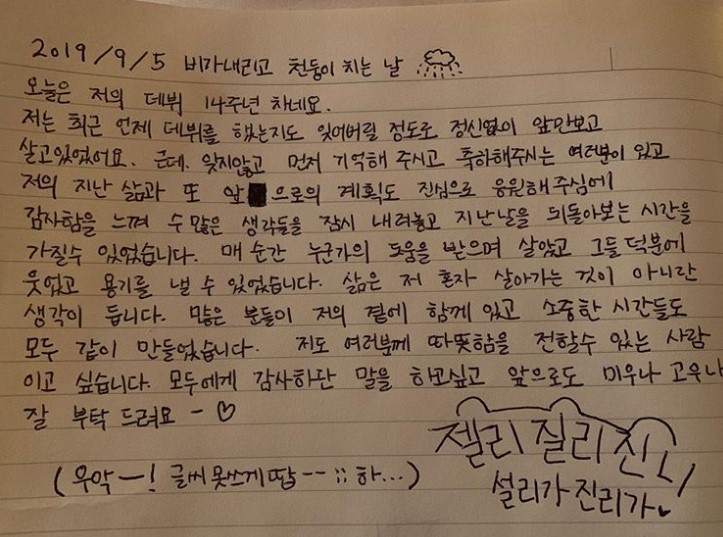 2019/9/5 비가내리고 천둥이 치는 날
오늘은 저의 데뷔 14주년 차네요.
저는 최근 언제 데뷔를 했는지도 잊어버릴 정도로 정신없이 앞만보고
살고있었어요. 근데, 잊지않고 먼저 기억해 주시고 축하해주시는 여러분이 있고
저의 지난 삶과 또 앞으로의 계획도 진심으로 응원해 주심에
감사함을 느껴 수 많은 생각들을 잠시 내려놓고 지난날을 되돌아보는 시간을
가질수 있었습니다. 매 순간 누군가의 도움을 받으며 살았고 그들 덕분에
웃었고 용기를 낼 수 있었습니다. 삶은 저 혼자 살아가는 것이 아니란
생각이 듭니다. 많은 분들이 저의 곁에 함께 있고 소중한 시간들도
모두 같이 만들었습니다. 저도 여러분께 따뜻함을 전할수 있는 사람
이고 싶습니다. 모두에게 감사하단 말을 하고싶고 앞으로도 미우나 고우나
잘 부탁 드려요 - ♡
젤리 질리 진리
설리가 진리가♥
(우악-! 글씨 못쓰게땁--;; 하...)